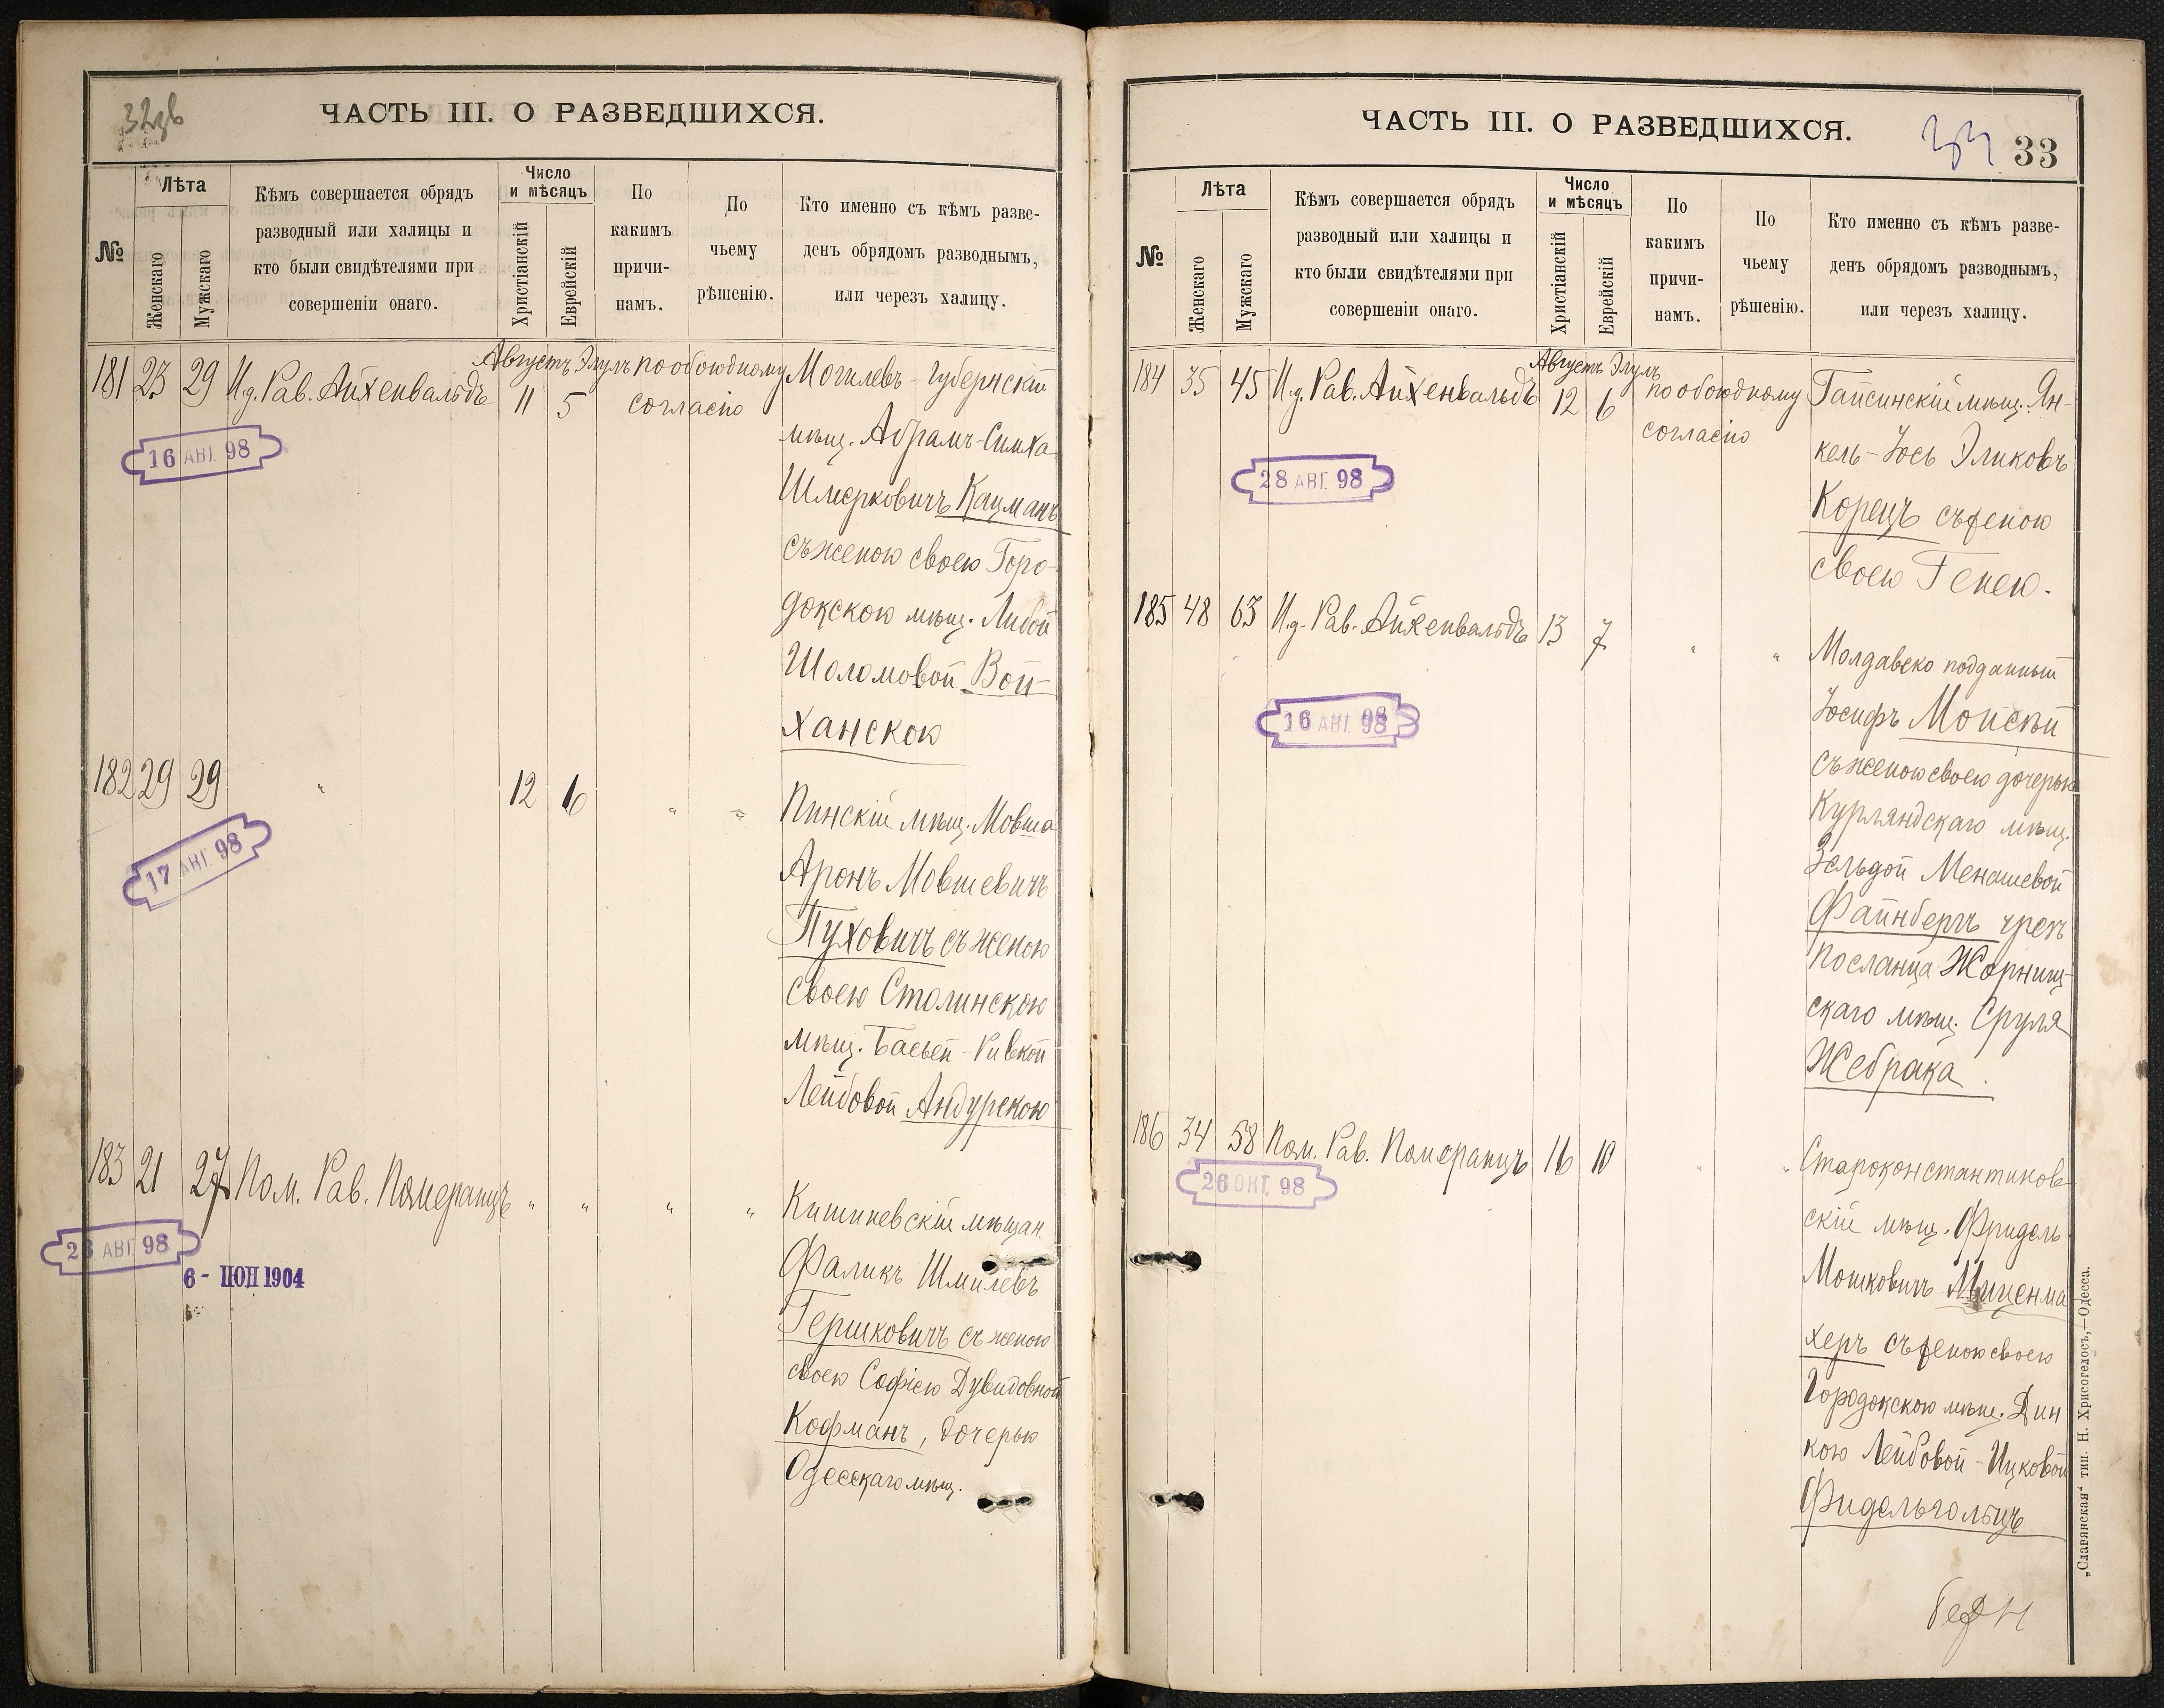 32зв
ЧАСТЬ III. О РАЗВЕДШИХСЯ.
№
Лѣта
Женскаго
Мужскаго
Кѣмъ совершается обрядъ
разводный или халицы и
кто были свидѣтелями при
совершеніи онаго.
Число
и мѣсяцъ
Христіанскій
Еврейскій
По
какимъ
причи-
намъ.
По
чьему
рѣшенію.
Кто именно съ кѣмъ разве-
денъ обрядомъ разводнымъ,
или черезъ халицу.
181 23 29 И.д. Рав. Айхенвальдъ Августъ 11 Элулъ 5 по обоюдному
согласію
Могилевъ-Губернскій
мѣщ. Абрамъ-Симха
Шмерковичъ Кацманъ
съ женою своею Горо-
докскою мѣщ. Либой
Шоломовой Вой-
ханскою
16 АВГ. 98
182 29 29 " 12 6 " "
Пинскій мѣщ. Мовша
Аронъ Мовшевичъ
Пуховичъ съ женою
своею Столинскою
мѣщ. Басьей-Ривкой
Лейбовой Андурскою
17 АВГ. 98
183 21 27 Пом. Рав. Померанцъ " " " "
Кишиневскій мѣщан.
Фаликъ Шмилевъ
Гершковичъ съ женою
своею Софіею Дувидовной
Кофманъ, дочерью
Одесскаго мѣщ.
АВГ. 98
6 - ІЮН 1904
ЧАСТЬ III. О РАЗВЕДШИХСЯ.
33 33
№
Лѣта
Женскаго
Мужскаго
Кѣмъ совершается обрядъ
разводный или халицы и
кто были свидѣтелями при
совершеніи онаго.
Число
и мѣсяцъ
Христіанскій
Еврейскій
По
какимъ
причи-
намъ.
По
чьему
рѣшенію.
Кто именно съ кѣмъ разве-
денъ обрядомъ разводнымъ,
или черезъ халицу.
184 35 45 И.д. Рав. Айхенвальдъ Августъ 12 Элулъ 6 по обоюдному
согласію
Гайсинскій мѣщ. Ян-
кель-Іось Эликовъ
Корецъ съ женою
своею Генею.
28 АВГ. 98
185 48 63 И.д. Рав. Айхенвальдъ 13 7 " "
Молдавско подданный
Іосифъ Моисѣй
съ женою своею дочерью
Курляндскаго мѣщ.
Зельдой Менашевой
Файнбергъ чрезъ
посланца Жорнищ-
скаго мѣщ. Сруля
Жебрака.
16 АВГ. 98
186 34 58 Пом. Рав. Померанцъ 16 10 " "
Староконстантинов-
скій мѣщ. Фридель
Мошковичъ Миценма
херъ съ женою своею
Городокскою мѣщ. Дин
кою Лейбовой-Ицковой
Фидельгольцъ
26 ОКТ. 98
„Славянская“ тип. Н. Хрисогелосъ,—Одесса.